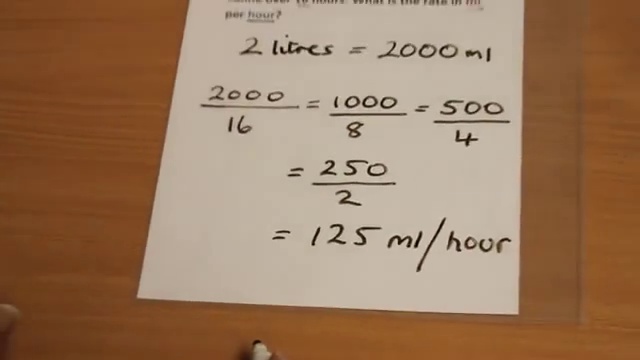 over 16 hours. What is the rate in ml
per hour?
2 litres = 2000 ml
2000/16 = 1000/8 = 500/4
= 250/2
= 125 ml/hour